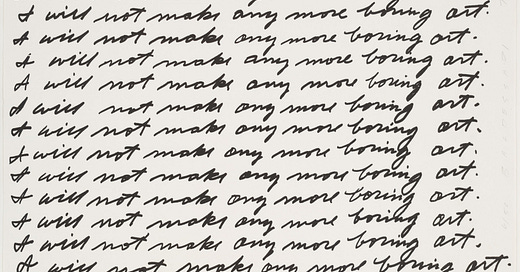 I will not make any more boring art.
I will not make any more boring art.
I will not make any more boring art.
I will not make any more boring art.
I will not make any more boring art.
I will not make any more boring art.
I will not make any more boring art.
I will not make any more boring art.
I will not make any more boring art.
I will not make any more boring art.
I will not make any more boring art.
I will not make any more boring art.